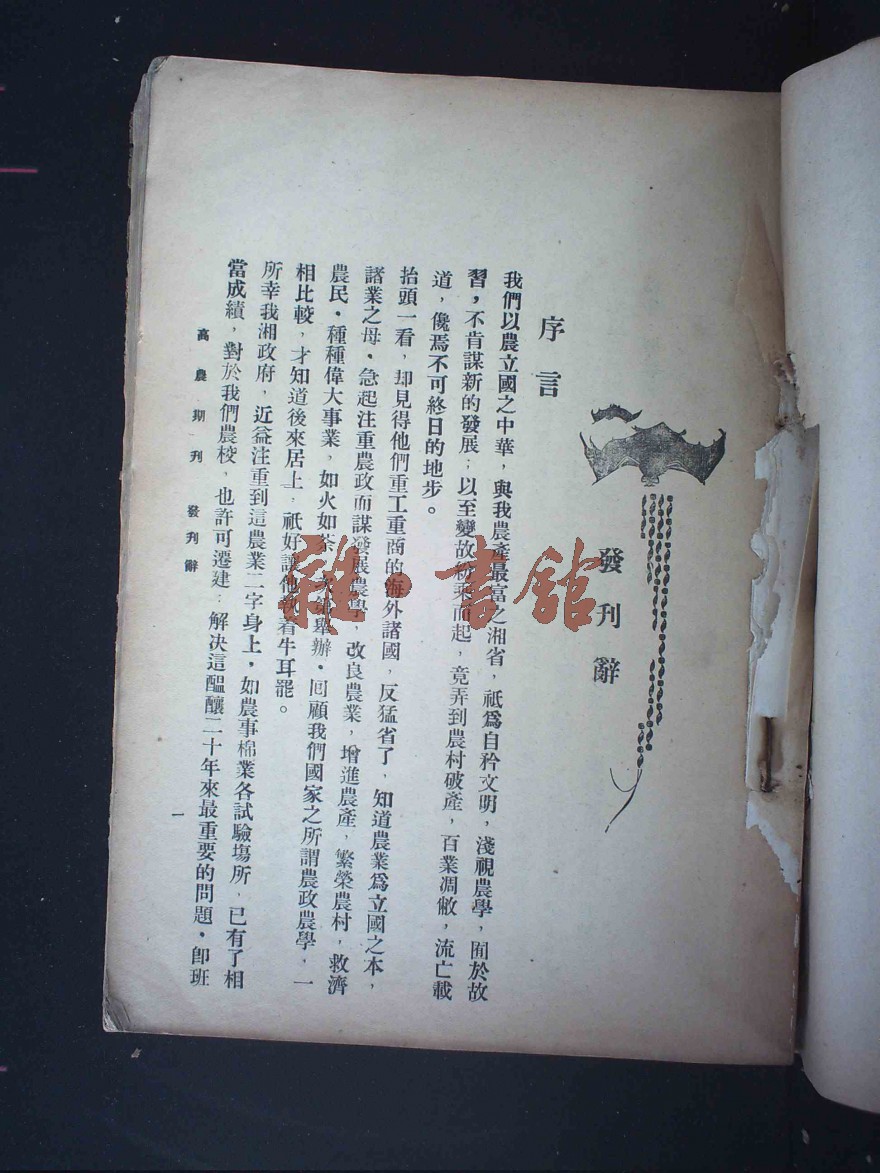 發刊辭
序言
我們以農立國之中華，與我農產最富之湘省，祇爲自矜文明，淺視農學，囿於故
習，不肯謀新的發展；以至變故紛乘而起，竟弄到農村破產，百業凋敝，流亡載
道，儳焉不可終日的地步。
抬頭一看，却見得他們重工重商的海外諸國，反猛省了，知道農業爲立國之本，
諸業之母。急起注重農政而謀發展農學，改良農業，增進農產，繁榮農村，救濟
農民。種種偉大事業，如火如荼，次第舉辦。回顧我們國家之所謂農政農學，一
相比較，才知道後來居上，祇好讓他執着牛耳罷。
所幸我湘政府，近益注重到這農業二字身上，如農事棉業各試驗塲所，已有了相
當成績，對於我們農校，也許可遷建；解决這醞釀二十年來最重要的問題。卽班
高農期刊　發刊辭
一
雜·書館